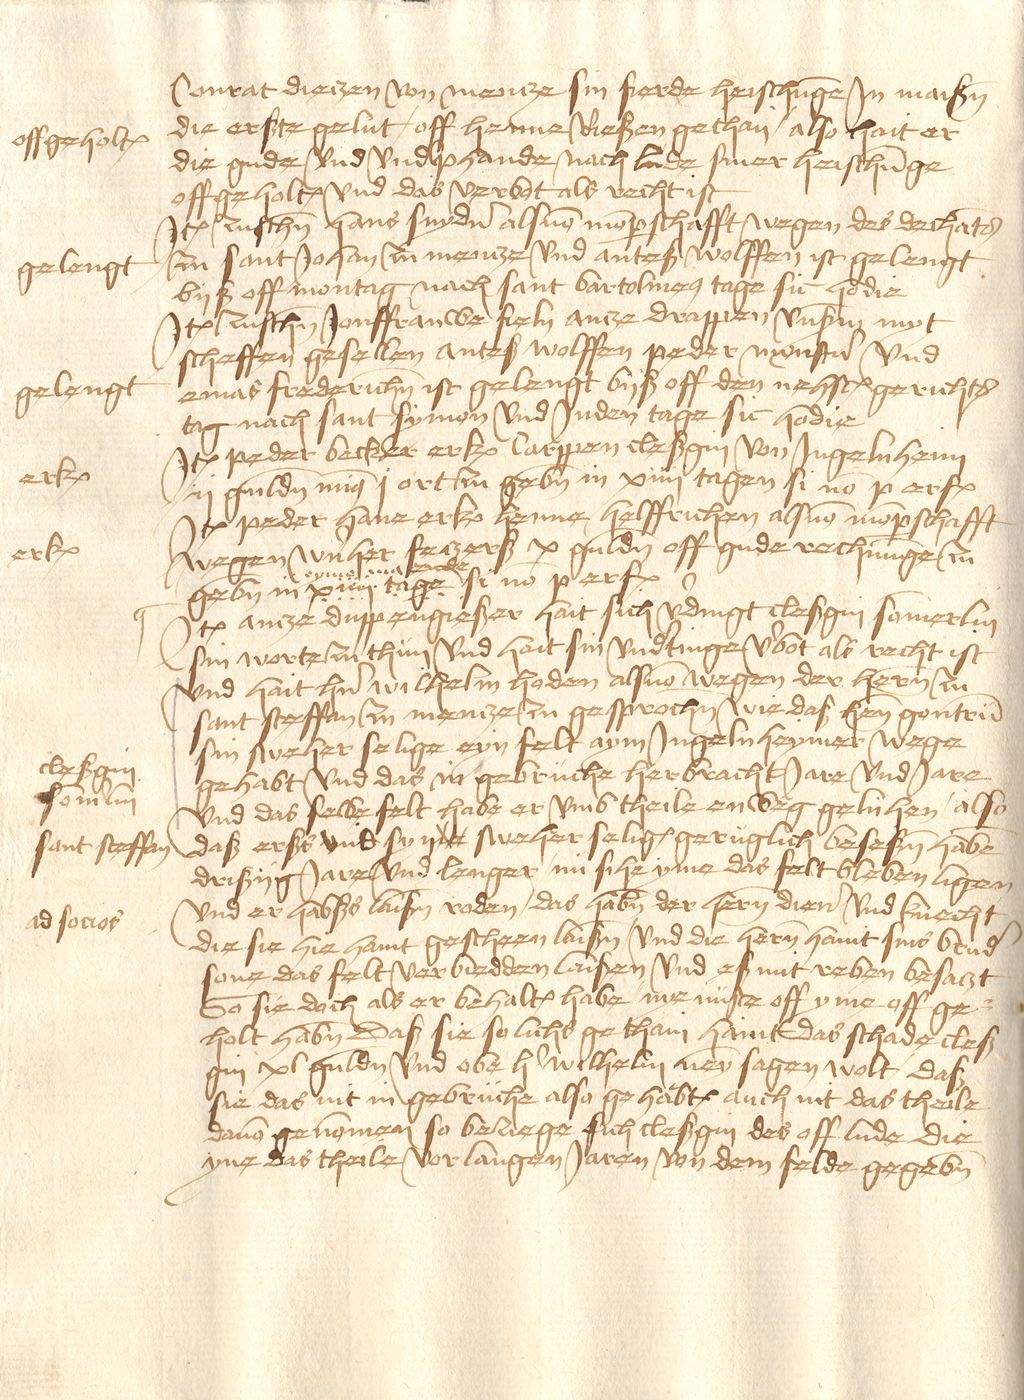 Conrat dieczen von mencze sin fierde heischu(n)ge In maiß(e)n
die erste gelut off henne Rießen gethan also hait er
offgeholt(en)
die gude und underphande nach lude siner heischu(n)ge
offgeholt(en) und das verbot als recht ist
It(em) zusch(e)n hans snyd(er) als(von) mo(m)p(ar)schafft wegen des dechants
gelengt
zu sant Johan zu mencze und anteß wolffen ist gelengt
byß off montag nach sant bartolmeus tage sic hodie
It(em) zusch(e)n Jonffrauwe feln ancze drappen unß(er)m myt
scheffen gesellen anteß wolffen peder und
gelengt
emas frederich(e)n ist gelengt byß off den nehst(en) gerichts
tag nach sant symon und Juden tage sic hodie
It(em) peder becker erk(ennen) Carppen cleßgin von Ingelnheim
erk(ennen)
ij guld(e)n min(us) j ort zu geb(e)n in xiiij tagen si no(n) p(fand) erk(ennen)
It(em) peder hane erk(ennen) henne helffrichen als(von) mo(m)p(ar)schafft
erk(ennen)
wegen wern(er)her x guld(e)n off gude rechnu(n)ge zu
geb(e)n in tage si no(n) p(fand) erk(ennen)
It(em) ancze duppengießer hait sich v(er)dingt cleßgin so(m)merlin
sin worte zu thun und hait sin underdinge v(er)bot als recht ist
und hait h(er)n wilhelm hoden als(von) wegen der hern zu
sant steffan zu mencze zu gesproch(e)n wie daß hen(n) gontru(m)
sin sweher selige eyn felt aym Ingelnheymer wege
cleßgin
gehabt und das in gebruche herbracht Jare und Jare
som(er)lin
und das selbe felt habe er umb theile enweg geluhen also
sant steffan
daß erß und syne sweher selig(e) geruglich beseß(e)n habe
drißyg Jare und lenger nu sihe yme das felt bleben ligen
ad socios
und er habs laiß(e)n roden das hab(e)n der hern dien(er) und knecht
die sie hie hant gescheen laiß(e)n und die hern hant sins brud(er)
sone das felt verbiedden laißen und eß mit reben besaczt
So sie doch als er behalt(en) habe nye nuste off yme off ge=
holt hab(e)n Daß sie solichs gethan haint das schade cleß
gin xl guld(e)n und obe h(er) wilhelm neyn sagen wolt daß
sie das nit in gebruche also gehabt(en) auch nit das theile
davo(n) geno(m)men so beziege sich cleßgin des off lude die
yne das theile vor langen Jaren von dem felde gegeb(e)n